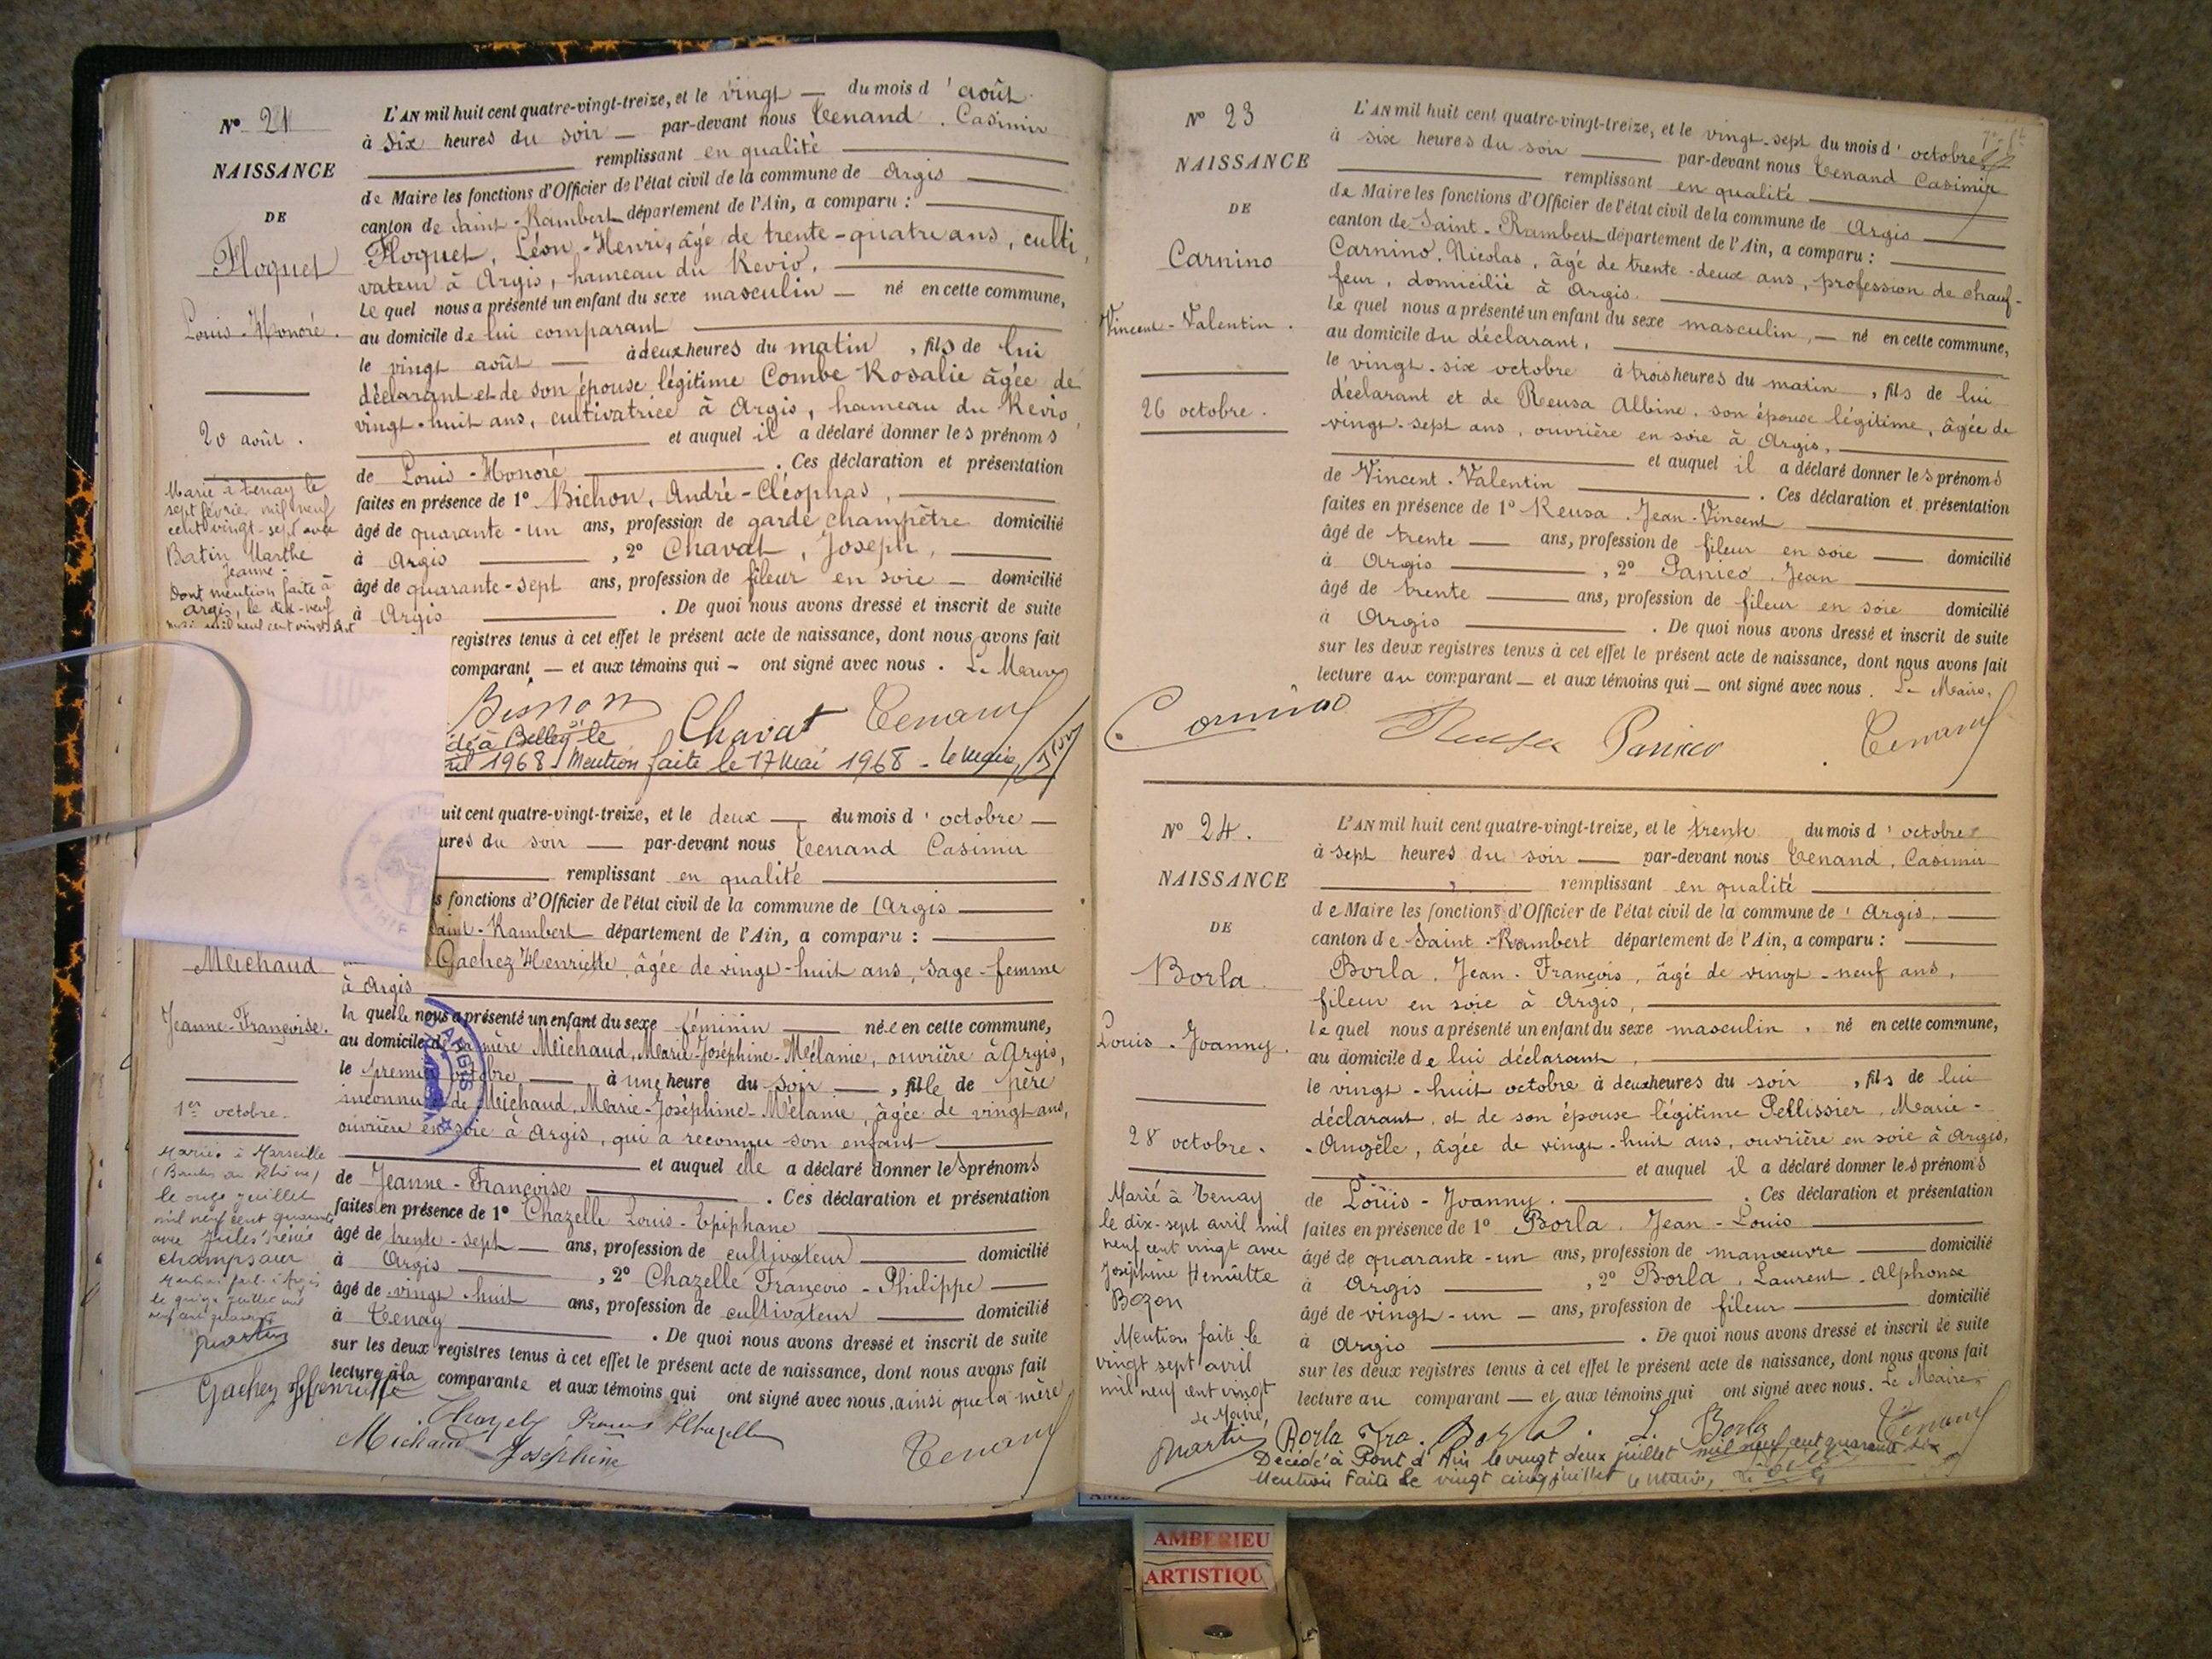 N° 21
NAISSANCE
DE
Floquet
Louis-Honoré.
20 août.
Marié à Tenay le
sept février mil neuf
cent vingt-sept avec
Batin Marthe
Jeanne.
Dont mention faite à
Argis, le dix-neuf
mai mil neuf cent vingt sept
L'AN mil huit cent quatre-vingt-treize, et le vingt — du mois d'août
à six heures du soir — par-devant nous Tenand, Casimir
remplissant en qualité
de Maire les fonctions d'Officier de l'état civil de la commune de Argis
canton de Saint-Rambert département de l'Ain, a comparu :
Floquet, Léon-Henri, âgé de trente-quatre ans, culti
vateur à Argis, hameau du Revio.
Le quel nous a présenté un enfant du sexe masculin — né en cette commune,
au domicile de lui comparant
le vingt août — à deux heures du matin, fils de lui
déclarant et de son épouse légitime Combe Rosalie âgée de
vingt-huit ans, cultivatrice à Argis, hameau du Revio,
et auquel il a déclaré donner les prénoms
de Louis-Honoré. Ces déclaration et présentation
faites en présence de 1° Bichon, André-Cléophas,
âgé de quarante-un ans, profession de garde champêtre domicilié
à Argis, 2° Chavat, Joseph,
âgé de quarante-sept ans, profession de fileur en soie — domicilié
à Argis. De quoi nous avons dressé et inscrit de suite
registres tenus à cet effet le présent acte de naissance, dont nous avons fait
comparant — et aux témoins qui — ont signé avec nous. Le Maire
Chavat Tenand
dé à Belley le
1968. Mention faite le 17 Mai 1968 - Le Maire,
Meichaud
Jeanne-Françoise.
1er octobre.
Mariée à Marseille
(Bouches du Rhône)
le onze juillet
mil neuf cent quarante
avec Jules Irénée
Champsaur
Martin
uit cent quatre-vingt-treize, et le deux — du mois d'octobre —
ures du soir — par-devant nous Tenand Casimir
remplissant en qualité
s fonctions d'Officier de l'état civil de la commune de Argis
Saint-Rambert département de l'Ain, a comparu :
Gachez Henriette, âgée de vingt-huit ans, sage-femme
à Argis
la quelle nous a présenté un enfant du sexe féminin — née en cette commune,
au domicile de sa mère Meichaud, Marie-Joséphine-Mélanie, ouvrière à Argis,
le premier octobre — à une heure du soir —, fille de père
inconnu et de Meichaud, Marie-Joséphine-Mélanie, âgée de vingt ans,
ouvrière en soie à Argis, qui a reconnu son enfant
et auquel elle a déclaré donner les prénoms
de Jeanne-Françoise. Ces déclaration et présentation
faites en présence de 1° Chazelle Louis-Epiphane
âgé de trente-sept — ans, profession de cultivateur domicilié
à Argis, 2° Chazelle François-Philippe
âgé de vingt-huit ans, profession de cultivateur domicilié
à Tenay. De quoi nous avons dressé et inscrit de suite
sur les deux registres tenus à cet effet le présent acte de naissance, dont nous avons fait
lecture à la comparante et aux témoins qui ont signé avec nous, ainsi que la mère
Gachez Henriette
Michaud Joséphine
Tenand
N° 23
NAISSANCE
DE
Carnino
Vincent-Valentin.
26 octobre.
L'AN mil huit cent quatre-vingt-treize, et le vingt-sept du mois d'octobre
à six heures du soir — par-devant nous Tenand Casimir
remplissant en qualité
de Maire les fonctions d'Officier de l'état civil de la commune de Argis
canton de Saint-Rambert département de l'Ain, a comparu :
Carnino, Nicolas, âgé de trente-deux ans, profession de chauf-
feur, domicilié à Argis.
le quel nous a présenté un enfant du sexe masculin, — né en cette commune,
au domicile du déclarant,
le vingt-six octobre à trois heures du matin, fils de lui
déclarant et de Reusa Albine, son épouse légitime, âgée de
vingt-sept ans, ouvrière en soie à Argis,
et auquel il a déclaré donner les prénoms
de Vincent-Valentin. Ces déclaration et présentation
faites en présence de 1° Reusa, Jean-Vincent
âgé de trente — ans, profession de fileur en soie — domicilié
à Argis, 2° Panico, Jean
âgé de trente ans, profession de fileur en soie domicilié
à Argis. De quoi nous avons dressé et inscrit de suite
sur les deux registres tenus à cet effet le présent acte de naissance, dont nous avons fait
lecture au comparant — et aux témoins qui — ont signé avec nous. Le Maire,
Carnino Reusa Panico Tenand
N° 24.
NAISSANCE
DE
Borla
Louis-Joanny.
28 octobre.
Marié à Tenay
le dix-sept avril mil
neuf cent vingt avec
Joséphine Henriette
Bozon
Mention faite le
vingt sept avril
mil neuf cent vingt
Le Maire,
Martin
L'AN mil huit cent quatre-vingt-treize, et le trente du mois d'octobre
à sept heures du soir — par-devant nous Tenand, Casimir
remplissant en qualité
de Maire les fonctions d'Officier de l'état civil de la commune de Argis.
canton de Saint-Rambert département de l'Ain, a comparu :
Borla, Jean-François, âgé de vingt-neuf ans,
fileur en soie à Argis,
le quel nous a présenté un enfant du sexe masculin, né en cette commune,
au domicile de lui déclarant,
le vingt-huit octobre à deux heures du soir, fils de lui
déclarant, et de son épouse légitime Pellissier, Marie-
-Angèle, âgée de vingt-huit ans, ouvrière en soie à Argis,
et auquel il a déclaré donner les prénoms
de Louis-Joanny. Ces déclaration et présentation
faites en présence de 1° Borla, Jean-Louis
âgé de quarante-un ans, profession de manœuvre domicilié
à Argis, 2° Borla, Laurent-Alphonse
âgé de vingt-un — ans, profession de fileur domicilié
à Argis. De quoi nous avons dressé et inscrit de suite
sur les deux registres tenus à cet effet le présent acte de naissance, dont nous avons fait
lecture au comparant — et aux témoins qui ont signé avec nous. Le Maire
Borla Fra. Borla. L. Borla Tenand
Décédé à Pont d'Ain le vingt deux juillet mil neuf cent quarante six
Mention faite le vingt cinq juillet Le Maire,
AMBERIEU
ARTISTIQU